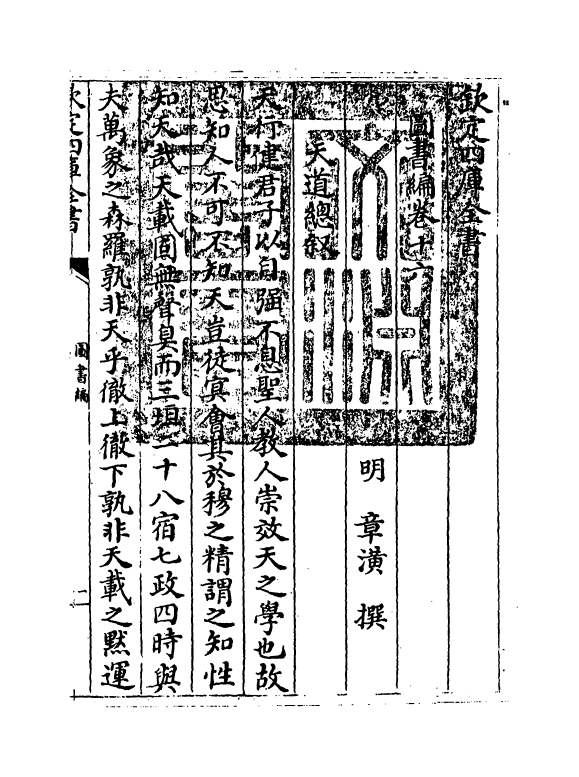 欽定四庫全書
圖書編卷十六
明 章潢 撰
天道總叙
天行健君子以自強不息聖人教人崇效天之學也故
思知人不可不知天豈徒㝠會其於穆之精謂之知性
知天哉天載固無聲臭而三垣二十八宿七政四時與
夫萬象之森羅孰非天乎徹上徹下孰非天載之黙運
欽定四庫全書
圖書編
二